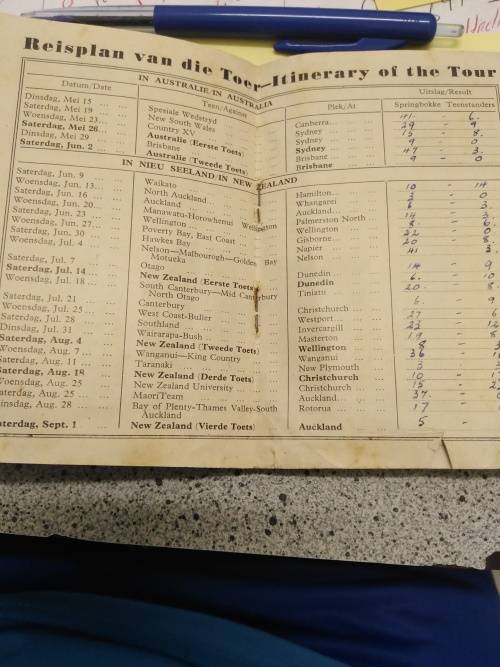 Reisplan van die Toer—Itinerary of the Tour
IN AUSTRALIE/IN AUSTRALIA
Uitslag/Result
Datum/Date Teen/Against Plek/At Springbokke Teenstanders
Dinsdag, Mei 15 Spesiale Wedstryd Canberra 41 - 6
Saterdag, Mei 19 New South Wales Sydney 29 - 9
Woensdag, Mei 23 Country XV Sydney 15 - 8
Saterdag, Mei 26 Australia (Eerste Toets) Sydney 9 - 0
Dinsdag, Mei 29 Brisbane Brisbane 47 - 3
Saterdag, Jun. 2 Australia (Tweede Toets) Brisbane 9 - 0
IN NIEU SEELAND/IN NEW ZEALAND
Saterdag, Jun. 9 Waikato Hamilton 10 - 14
Woensdag, Jun. 13 North Auckland Whangarei 3 - 0
Saterdag, Jun. 16 Auckland Auckland 6 - 3
Woensdag, Jun. 20 Manawatu-Horowhenui Palmerston North 14 - 3
Saterdag, Jun. 23 Wellington Wellington 8 - 6
Woensdag, Jun. 27 Poverty Bay, East Coast Gisborne 22 - 0
Saterdag, Jun. 30 Hawkes Bay Napier 20 - 8
Woensdag, Jul. 4 Nelson—Malbourogh—Golden Bay Nelson 41 - 3
Motueka
Saterdag, Jul. 7 Otago Dunedin 14 - 9
Saterdag, Jul. 14 New Zealand (Eerste Toets) Dunedin 6 - 10
Woensdag, Jul. 18 South Canterbury—Mid Canterbury 20 - 8
North Otago
Saterdag, Jul. 21 Canterbury Christchurch 6 - 9
Woensdag, Jul. 25 West Coast-Buller Westport 27 - 6
Saterdag, Jul. 28 Southland Invercargill 23 - 12
Dinsdag, Jul. 31 Wairarapa-Bush Masterton 19 - 8
Saterdag, Aug. 4 New Zealand (Tweede Toets) Wellington 8 -
Woensdag, Aug. 7 Wanganui—King Country Wanganui 36 -
Saterdag, Aug. 11 Taranaki New Plymouth 3 -
Saterdag, Aug. 18 New Zealand (Derde Toets) Christchurch 10 -
Woensdag, Aug. 25 New Zealand University Christchurch 15 -
Saterdag, Aug. 25 MaoriTeam Auckland 37 -
Dinsdag, Aug. 28 Bay of Plenty-Thames Valley-South Rotorua 17 -
Auckland
aterdag, Sept. 1 New Zealand (Vierde Toets) Auckland 5 -